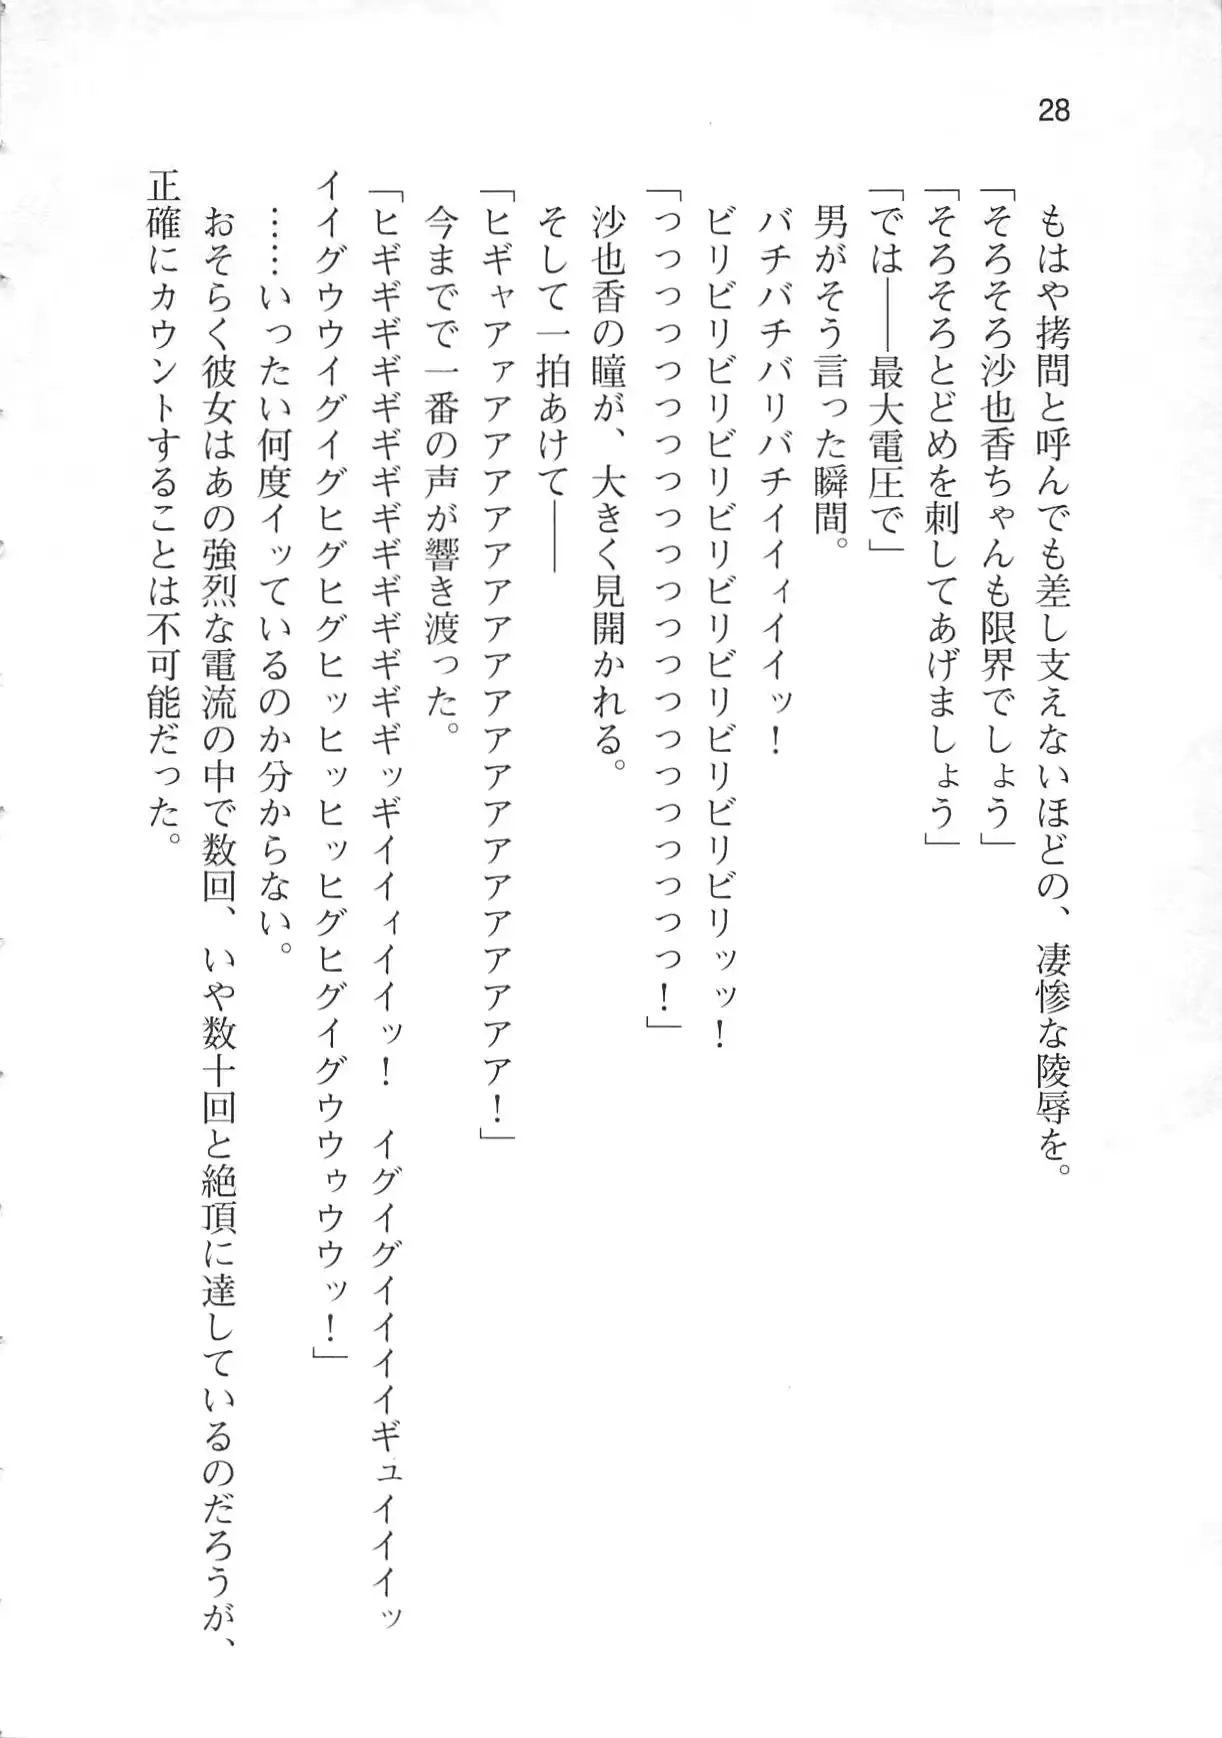 28
もはや拷問と呼んでも差し支えないほどの、凄惨な陵辱を。
「そろそろ沙也香ちゃんも限界でしょう」
「そろそろとどめを刺してあげましょう」
「では――最大電圧で」
男がそう言った瞬間。
バチバチバリバチイイィイイッ！
ビリビリビリビリビリビリビリビリビリビリッッ！
「っっっっっっっっっっっっっっっっっっっっっ！」
沙也香の瞳が、大きく見開かれる。
そして一拍あけて――
「ヒギャアァアアアアアアアアアアアアアアアアアアア！」
今までで一番の声が響き渡った。
「ヒギギギギギギギギギギギギギギッギイイィイイッ！　イグイグイイイイギュイイイッ
イイグウウイグイグヒグヒグヒッヒッヒッヒグヒグイグウウゥウウッ！」
……いったい何度イッているのか分からない。
おそらく彼女はあの強烈な電流の中で数回、いや数十回と絶頂に達しているのだろうが、
正確にカウントすることは不可能だった。